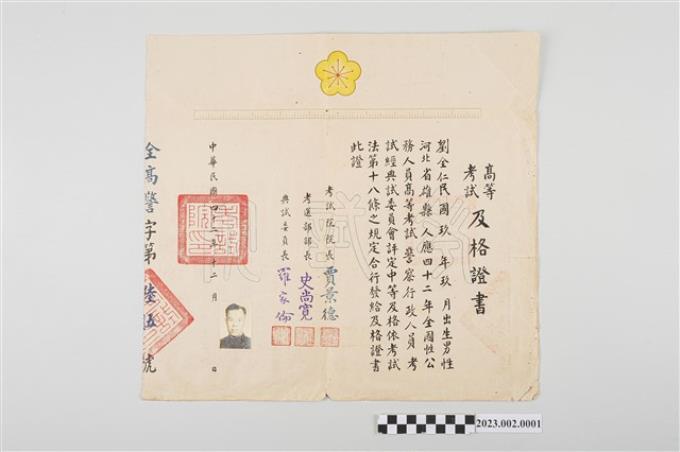 高等考試及格證書
劉全仁民國玖年玖月出生男性
河北省雄縣人應四十二年全國性公
務人員高等考試警察行政人員考
試經典試委員會評定中等及格依考試
法第十八條之規定合行發給及格證書
此證
考試院院長賈景德
考選部部長史尚寬
典試委員長羅家倫
中華民國四十二年十二月 日
全高警字第陸五號
2023.002.0001